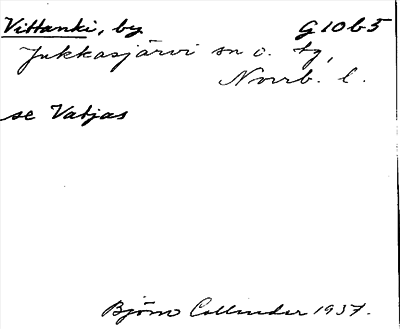 Vittanki, by G10b5
Jukkasjärvi sn o. tg,
Norrb. l.
se Vatjas
Björn Collinder 1937.